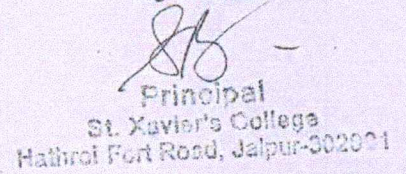 Principal
St. Xavier's College
Hathroi Fort Road, Jaipur-302001